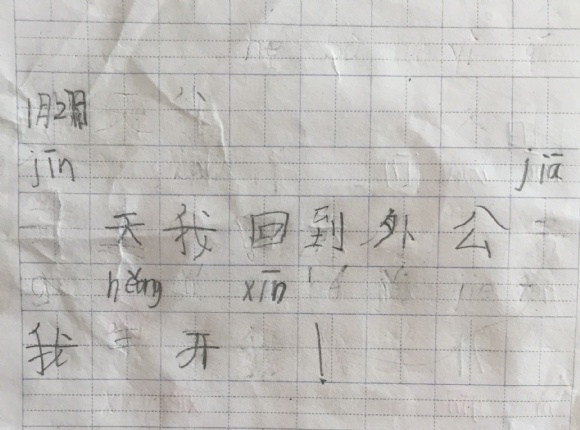 1月2日
jīn jiā
天我回到外公
hěng xīn
我 开 !